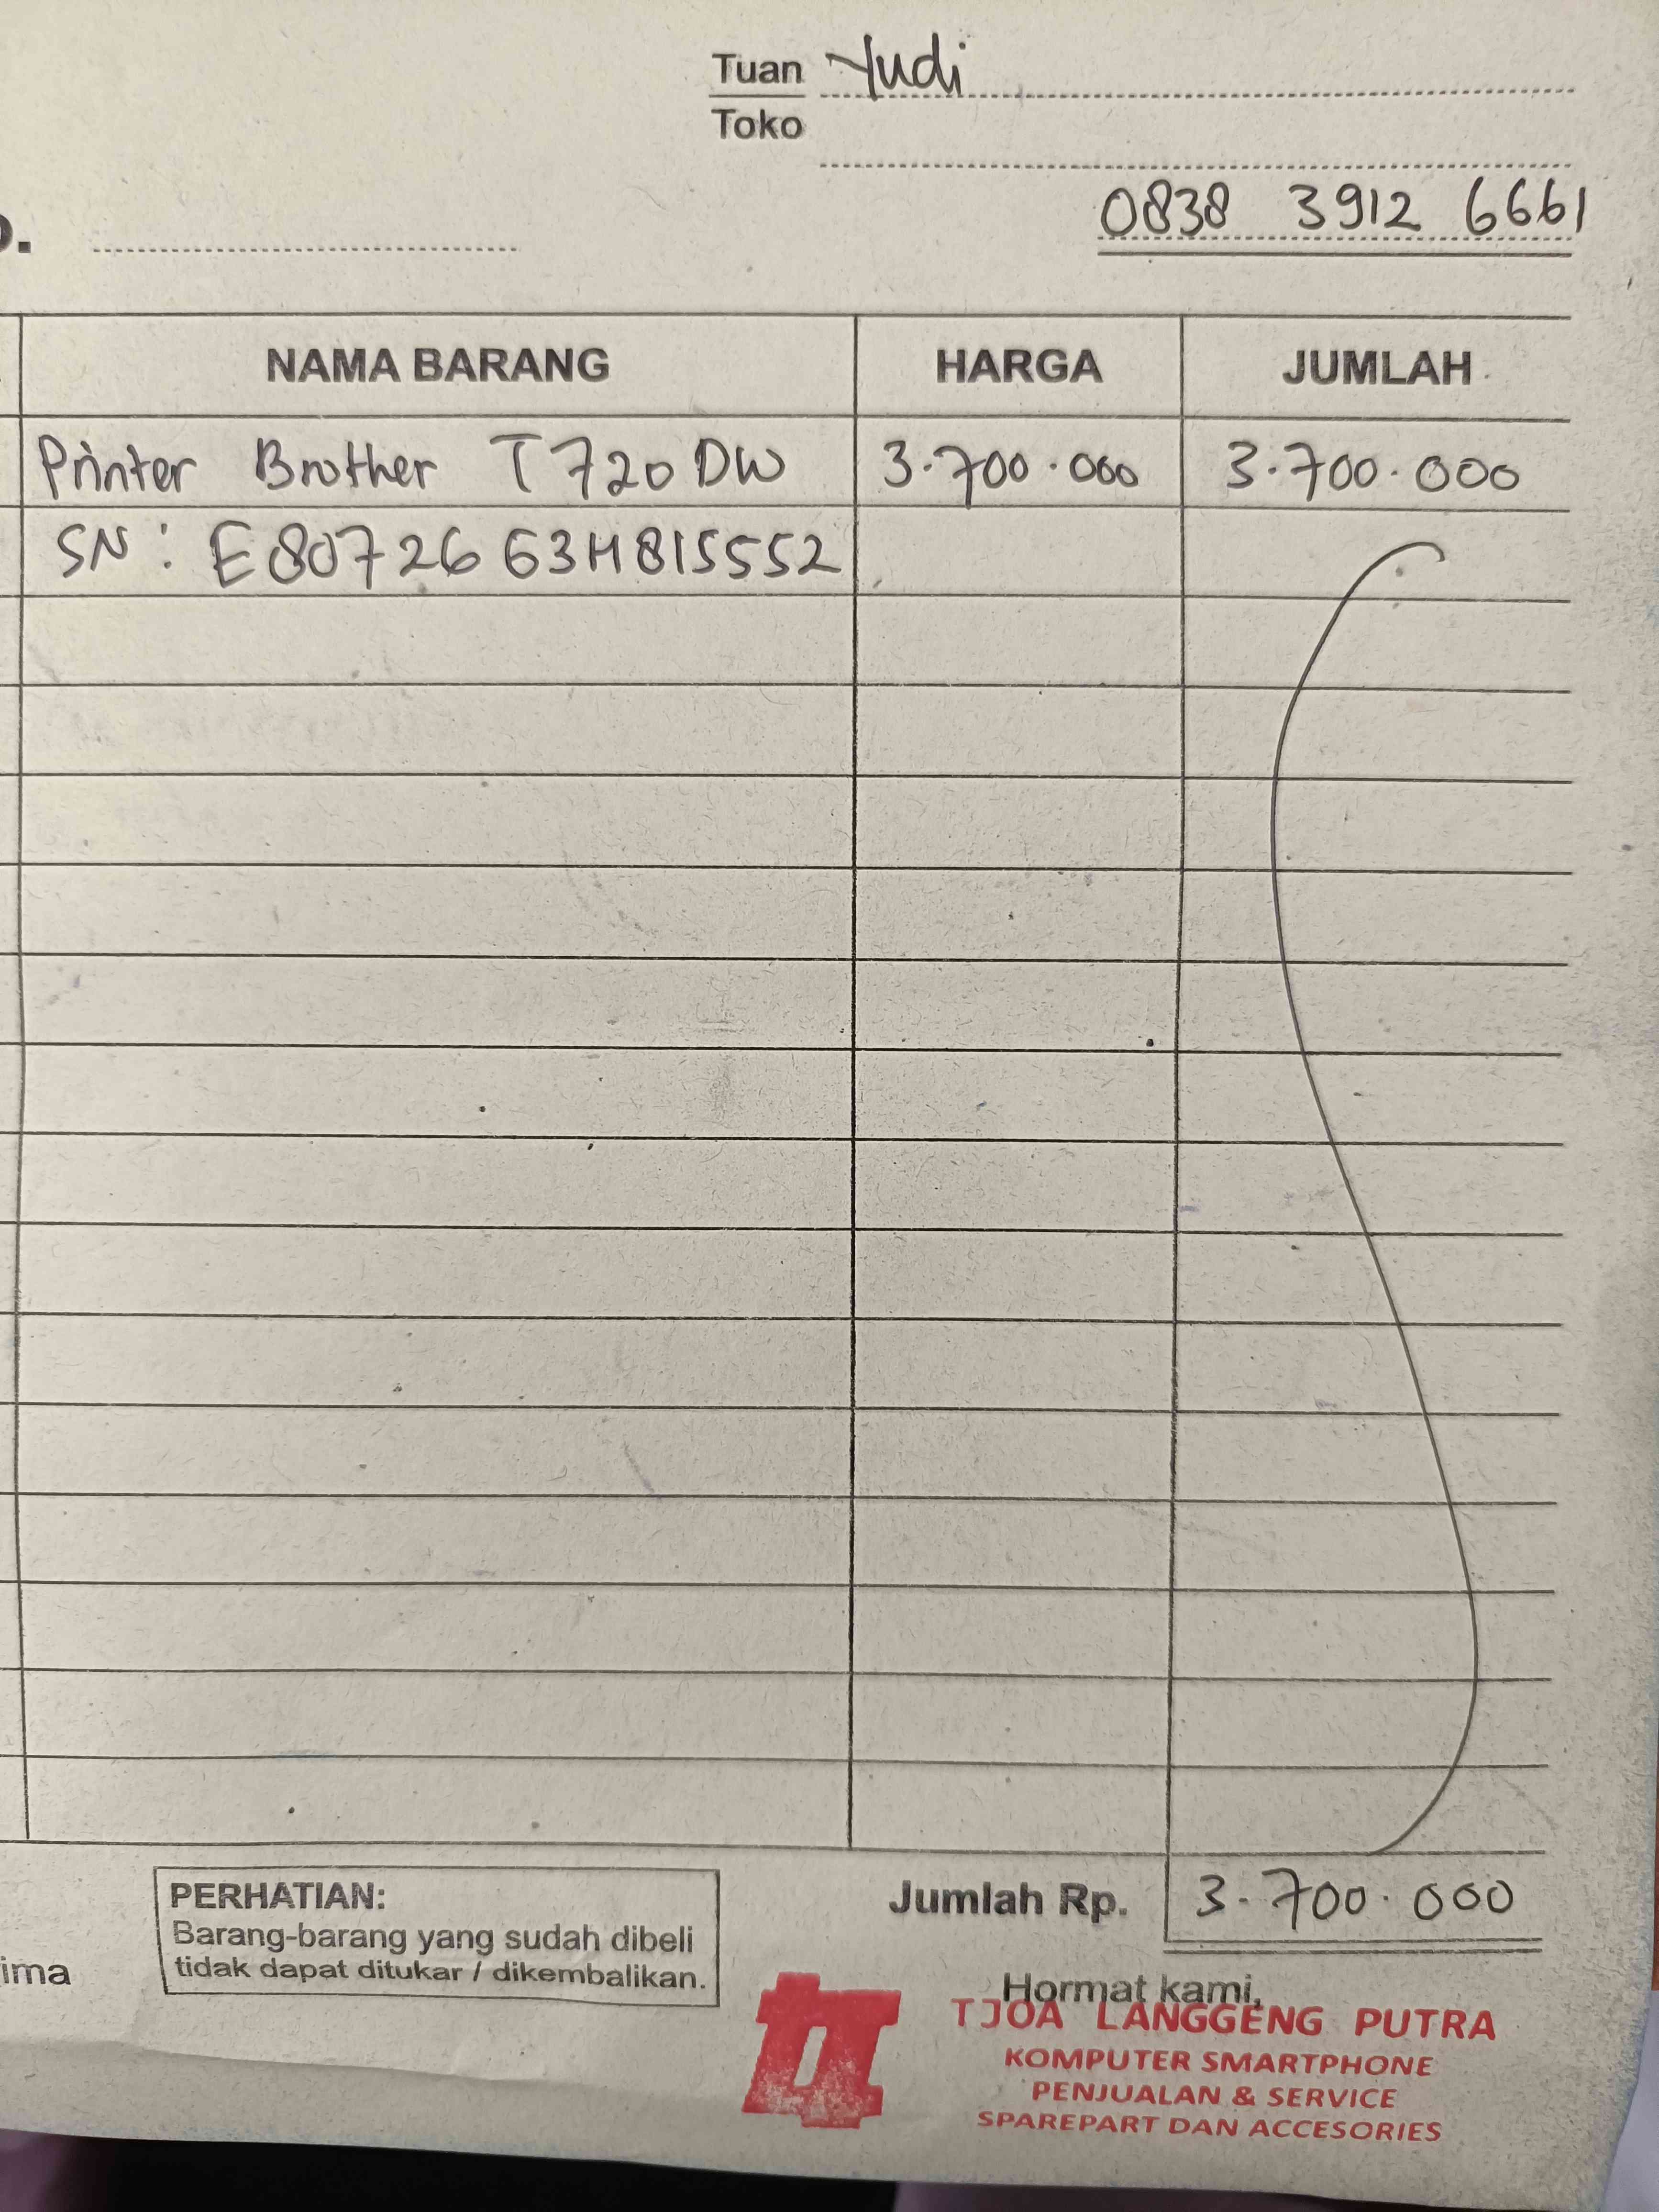 Tuan Yudi
Toko
0838 3912 6661
o.
NAMA BARANG HARGA JUMLAH
Printer Brother T720DW 3.700.000 3.700.000
SN : E8072663H815552
Jumlah Rp. 3.700.000
PERHATIAN:
Barang-barang yang sudah dibeli
tidak dapat ditukar / dikembalikan.
ima
Hormat kami,
TJOA LANGGENG PUTRA
KOMPUTER SMARTPHONE
PENJUALAN & SERVICE
SPAREPART DAN ACCESORIES